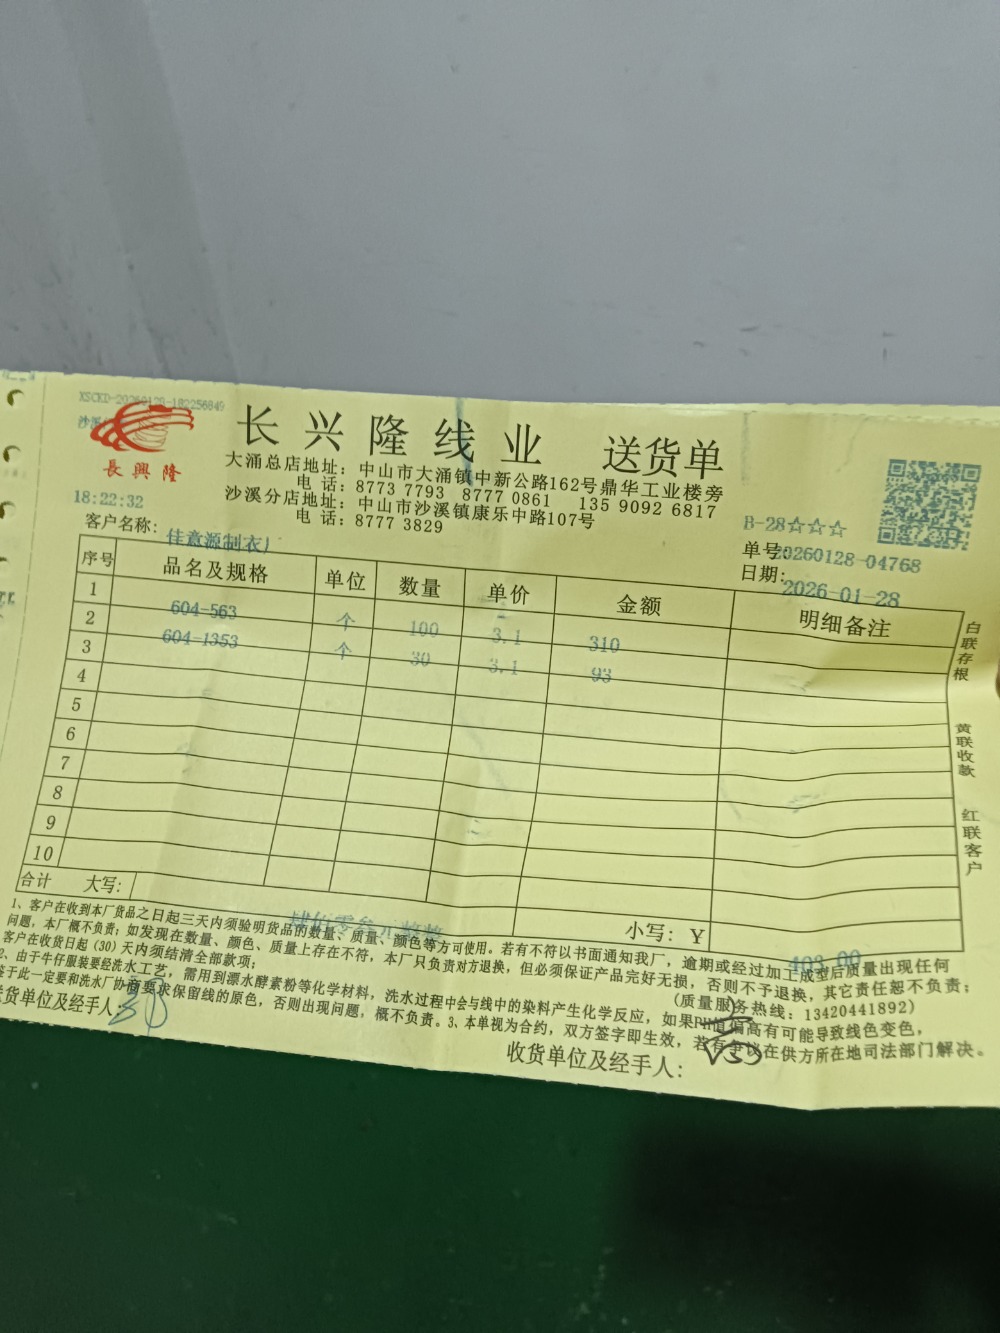 XSCKD-20260128-182256849
長興隆
长兴隆线业 送货单
大涌总店地址：中山市大涌镇中新公路162号鼎华工业楼旁
电 话：8773 7793 8777 0861 135 9092 6817
沙溪分店地址：中山市沙溪镇康乐中路107号
电 话：8777 3829
18:22:32
B-28☆☆☆
客户名称：佳意源制衣厂
单号：20260128-04768
日期：2026-01-28
序号 品名及规格 单位 数量 单价 金额 明细备注
1 604-563 个 100 3.1 310
2 604-1353 个 30 3.1 93
3
4
5
6
7
8
9
10
合计 大写：肆佰零叁元整 小写：Y 403.00
白联存根 黄联收款 红联客户
1、客户在收到本厂货品之日起三天内须验明货品的数量、质量、颜色等方可使用。若有不符以书面通知我厂，逾期或经过加工成型后质量出现任何
问题，本厂概不负责；如发现在数量、颜色、质量上存在不符，本厂只负责对方退换，但必须保证产品完好无损，否则不予退换，其它责任恕不负责；
客户在收货日起（30）天内须结清全部款项；
（质量服务热线：13420441892）
2、由于牛仔服装要经洗水工艺，需用到漂水酵素粉等化学材料，洗水过程中会与线中的染料产生化学反应，如果PH值偏高有可能导致线色变色，
鉴于此一定要和洗水厂协商要求保留线的原色，否则出现问题，概不负责。3、本单视为合约，双方签字即生效，若有争议在供方所在地司法部门解决。
货单位及经手人：
收货单位及经手人：